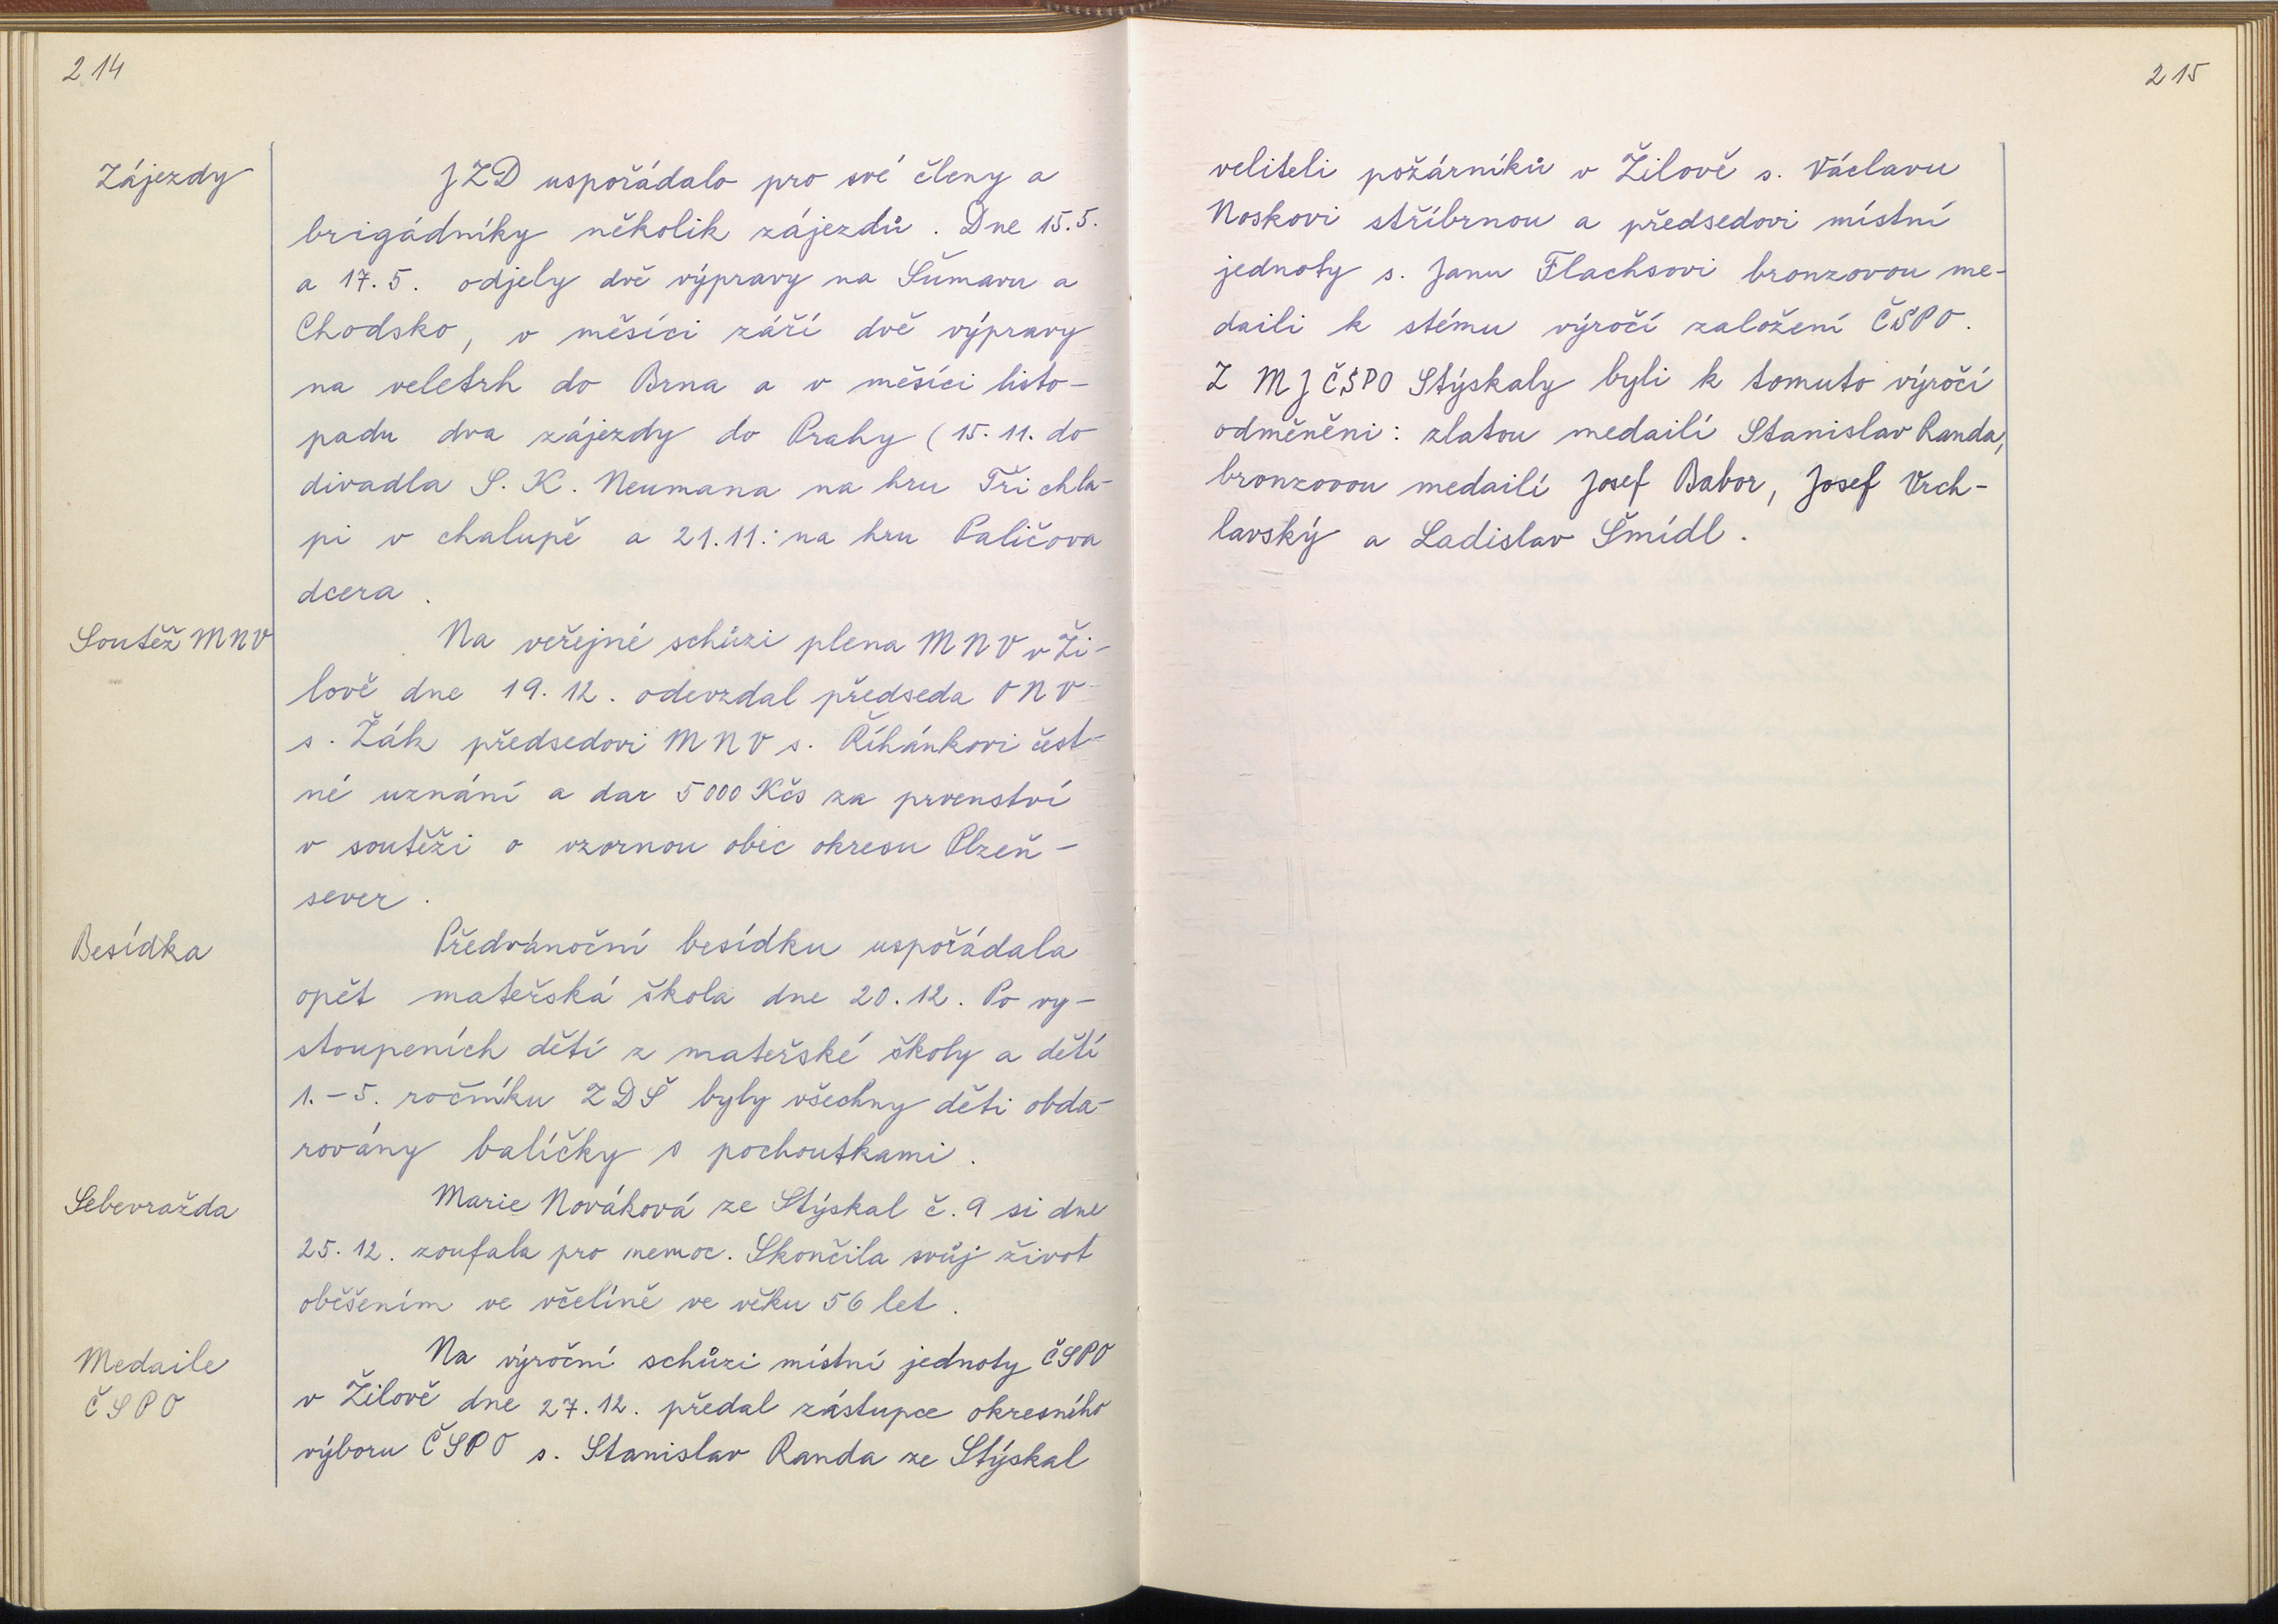 214
Zájezdy
JZD uspořádalo pro své členy a
brigádníky několik zájezdů. Dne 15.5.
a 17.5. odjely dvě výpravy na Šumavu a
Chodsko, v měsíci září dvě výpravy
na veletrh do Brna a v měsíci listo-
padu dva zájezdy do Prahy (15.11. do
divadla S. K. Neumana na hru Tři chla-
pi v chalupě a 21.11. na hru Paličova
dcera.
Soutěž MNV
Na veřejné schůzi plena MNV v Ži-
lově dne 19.12. odevzdal předseda ONV
s. Žák předsedovi MNV s. Říhánkovi čest-
né uznání a dar 5000 Kčs za prvenství
v soutěži o vzornou obec okresu Plzeň-
sever.
Besídka
Předvánoční besídku uspořádala
opět mateřská škola dne 20.12. Po vy-
stoupeních dětí z mateřské školy a dětí
1.-5. ročníku ZDŠ byly všechny děti obda-
rovány balíčky s pochoutkami.
Sebevražda
Marie Nováková ze Stýskal č. 9 si dne
25.12. zoufala pro nemoc. Skončila svůj život
oběšením ve včelíně ve věku 56 let.
Medaile
ČSPO
Na výroční schůzi místní jednoty ČSPO
v Žilově dne 27.12. předal zástupce okresního
výboru ČSPO s. Stanislav Randa ze Stýskal
215
veliteli požárníků v Žilově s. Václavu
Noskovi stříbrnou a předsedovi místní
jednoty s. Janu Flachsovi bronzovou me-
daili k stému výročí založení ČSPO.
Z MJ ČSPO Stýskaly byli k tomuto výročí
odměněni: zlatou medailí Stanislav Randa,
bronzovou medailí Josef Babor, Josef Vrch-
lavský a Ladislav Šmídl.